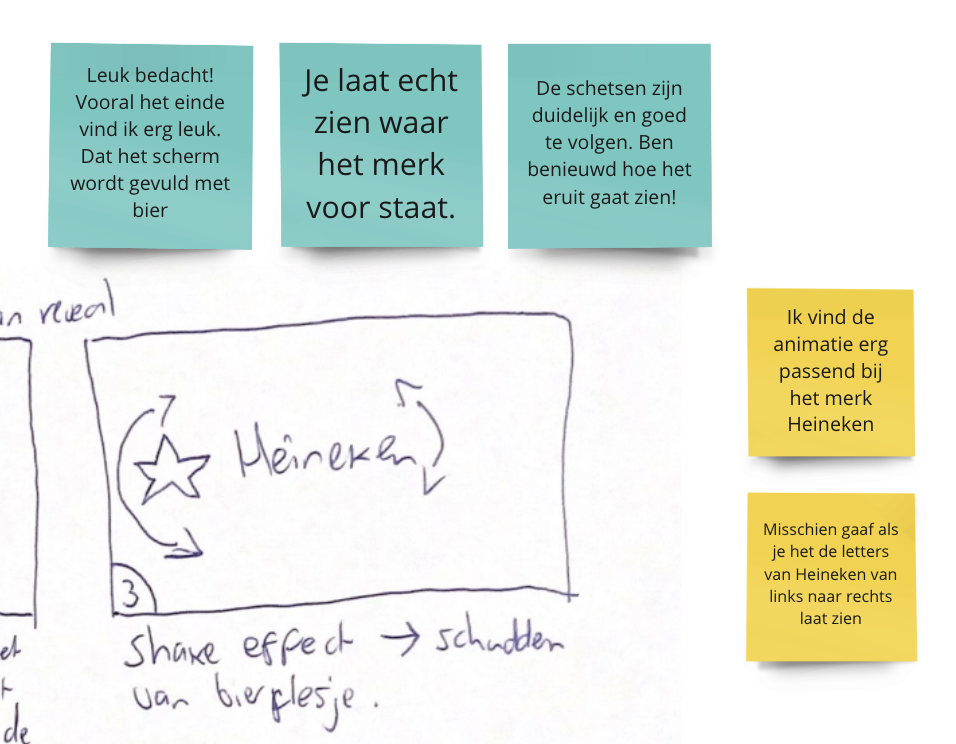 Leuk bedacht!
Vooral het einde
vind ik erg leuk.
Dat het scherm
wordt gevuld met
bier
Je laat echt
zien waar
het merk
voor staat.
De schetsen zijn
duidelijk en goed
te volgen. Ben
benieuwd hoe het
eruit gaat zien!
Ik vind de
animatie erg
passend bij
het merk
Heineken
Misschien gaaf als
je het de letters
van Heineken van
links naar rechts
laat zien
reveal
Heineken
3
Shake effect → schudden
van bierflesje.
de